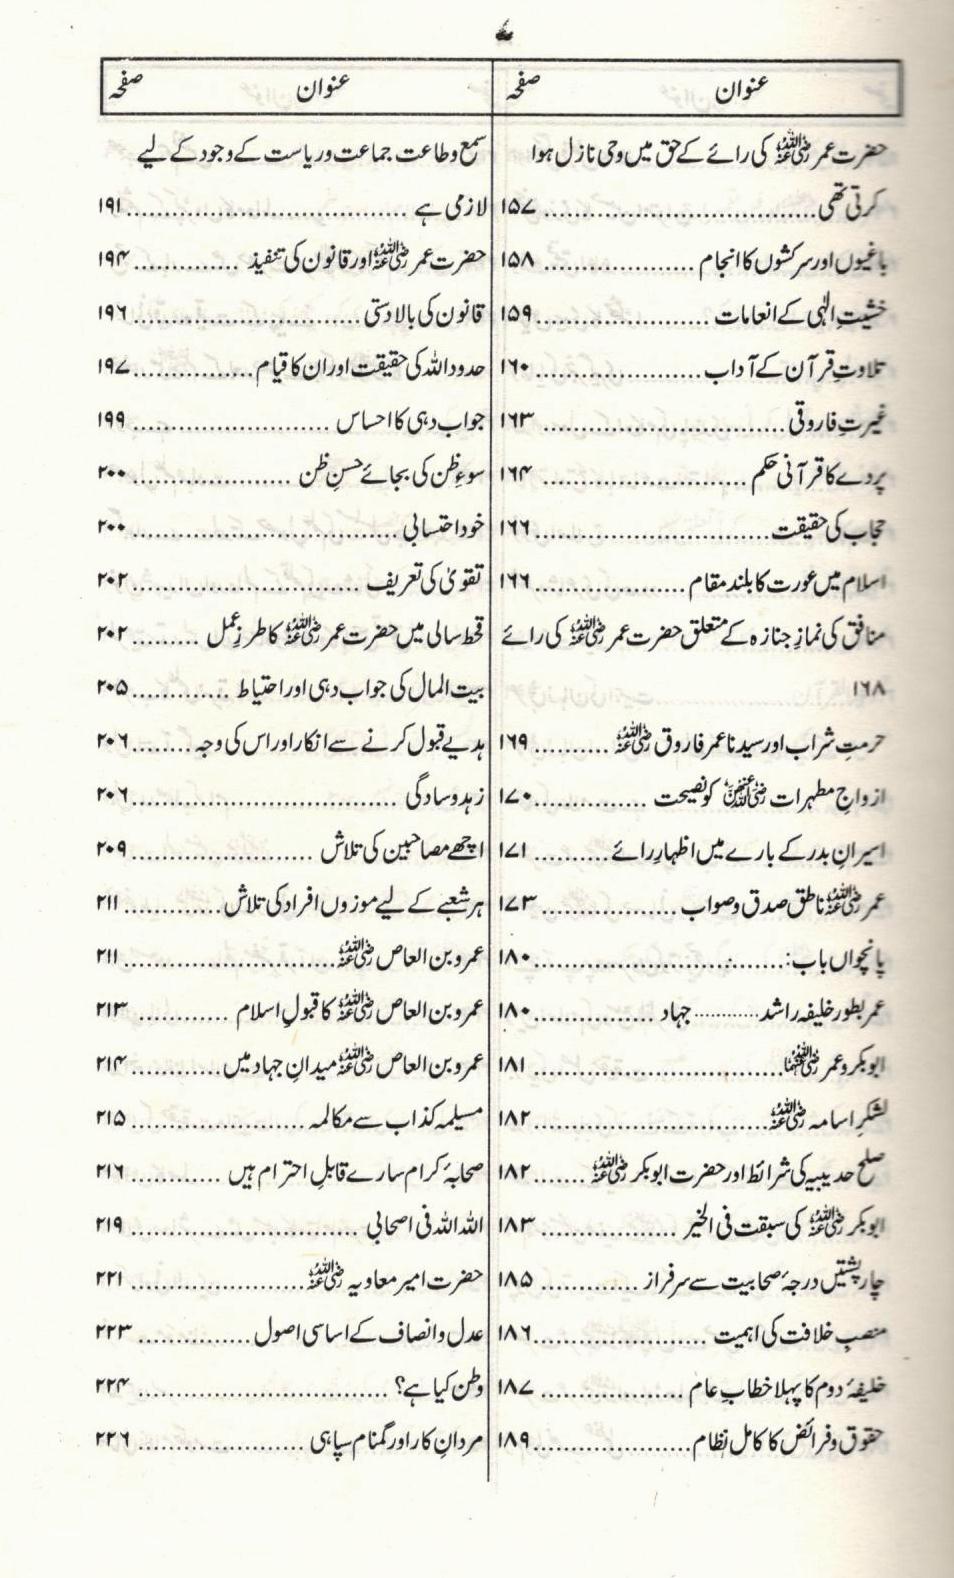 ۷
عنوان صفحہ
حضرت عمر رضی اللہ عنہ کی رائے کے حق میں وحی نازل ہوا
کرتی تھی ................ ۱۵۷
باغیوں اور سرکشوں کا انجام ................ ۱۵۸
خشیتِ الٰہی کے انعامات ................ ۱۵۹
تلاوتِ قرآن کے آداب ................ ۱۶۰
غیرتِ فاروقی ................ ۱۶۳
پردے کا قرآنی حکم ................ ۱۶۴
حجاب کی حقیقت ................ ۱۶۶
اسلام میں عورت کا بلند مقام ................ ۱۶۶
منافق کی نمازِ جنازہ کے متعلق حضرت عمر رضی اللہ عنہ کی رائے
................ ۱۶۸
حرمتِ شراب اور سیدنا عمر فاروق رضی اللہ عنہ .......... ۱۶۹
ازواجِ مطہرات رضی اللہ عنہن کو نصیحت ............... ۱۷۰
اسیرانِ بدر کے بارے میں اظہارِ رائے .......... ۱۷۱
عمر رضی اللہ عنہ ناطق صدق و صواب ................ ۱۷۳
پانچواں باب: ................ ۱۸۰
عمر بطور خلیفہ راشد ............ جہاد ............... ۱۸۰
ابوبکر و عمر رضی اللہ عنہما ................ ۱۸۱
لشکرِ اسامہ رضی اللہ عنہ ................ ۱۸۲
صلح حدیبیہ کی شرائط اور حضرت ابوبکر رضی اللہ عنہ ....... ۱۸۲
ابوبکر رضی اللہ عنہ کی سبقت فی الخیر ................ ۱۸۳
چار پشتیں درجۂ صحابیت سے سرفراز ............ ۱۸۵
منصبِ خلافت کی اہمیت ................ ۱۸۶
خلیفۂ دوم کا پہلا خطابِ عام ................ ۱۸۷
حقوق و فرائض کا کامل نظام ................ ۱۸۹
عنوان صفحہ
سمع و طاعت جماعت و ریاست کے وجود کے لیے
لازمی ہے ................ ۱۹۱
حضرت عمر رضی اللہ عنہ اور قانون کی تنفیذ ............. ۱۹۴
قانون کی بالادستی ................ ۱۹۶
حدود اللہ کی حقیقت اور ان کا قیام ............... ۱۹۷
جواب دہی کا احساس ................ ۱۹۹
سوءِ ظن کی بجائے حسنِ ظن ................ ۲۰۰
خود احتسابی ................ ۲۰۰
تقویٰ کی تعریف ................ ۲۰۲
قحط سالی میں حضرت عمر رضی اللہ عنہ کا طرزِ عمل ......... ۲۰۲
بیت المال کی جواب دہی اور احتیاط ............. ۲۰۵
ہدیے قبول کرنے سے انکار اور اس کی وجہ ........ ۲۰۶
زہد و سادگی ................ ۲۰۶
اچھے مصاحبین کی تلاش ................ ۲۰۹
ہر شعبے کے لیے موزوں افراد کی تلاش ............. ۲۱۱
عمرو بن العاص رضی اللہ عنہ ................ ۲۱۱
عمرو بن العاص رضی اللہ عنہ کا قبولِ اسلام ............ ۲۱۳
عمرو بن العاص رضی اللہ عنہ میدانِ جہاد میں ............ ۲۱۴
مسیلمہ کذاب سے مکالمہ ................ ۲۱۵
صحابۂ کرام سارے قابلِ احترام ہیں ............ ۲۱۶
اللہ اللہ فی اصحابی ................ ۲۱۹
حضرت امیر معاویہ رضی اللہ عنہ ................ ۲۲۱
عدل و انصاف کے اساسی اصول ............... ۲۲۳
وطن کیا ہے؟ ................ ۲۲۴
مردانِ کار اور گمنام سپاہی ................ ۲۲۶